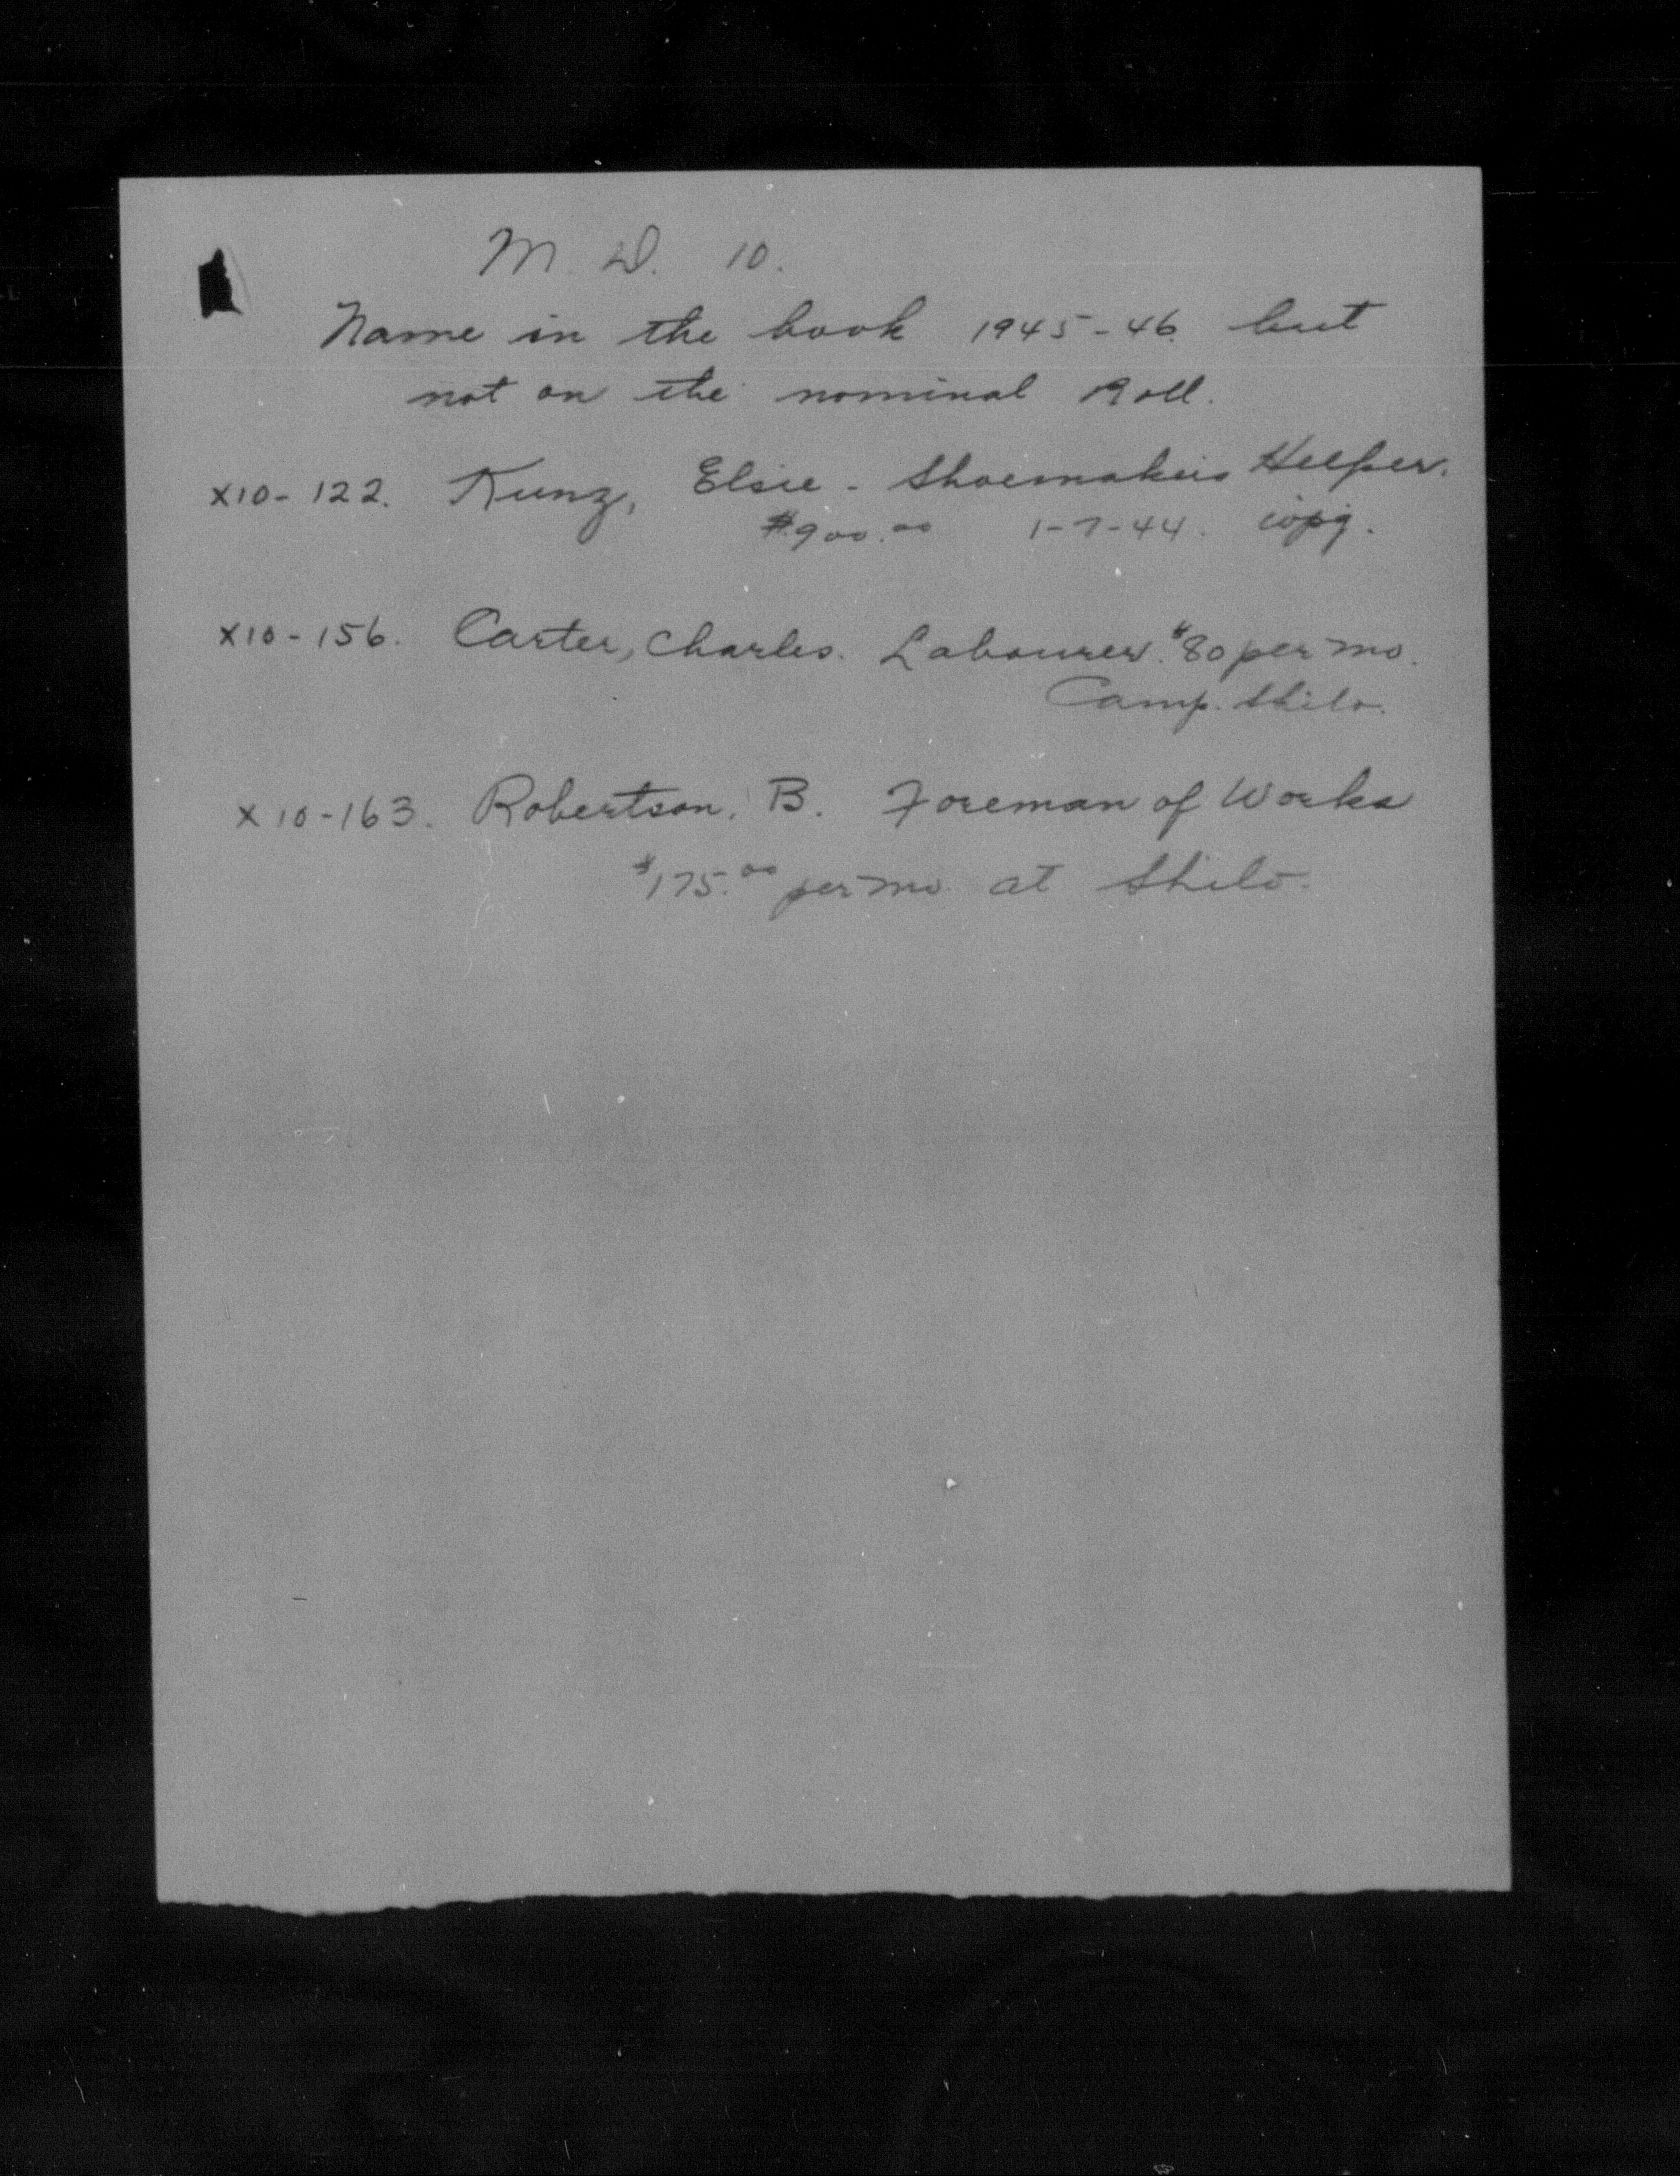 M. D. 10.
Name in the book 1945-46 but
not on the nominal Roll.
X10-122. Kunz, Elsie - Shoemakers Helper.
$900.00 1-7-44. wpg.
X10-156. Carter, Charles. Labourer. $80 per mo.
Camp. Shilo.
X10-163. Robertson, B. Foreman of Works
$175.00 per mo at Shilo.